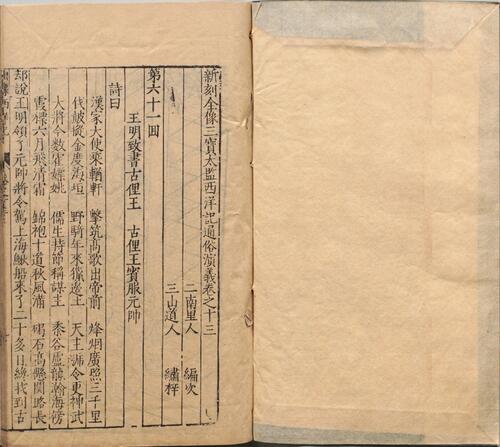 新刻全像三寶太監西洋記通俗演義卷之十三
二南里人　編次
三山道人　繡梓
第六十一回
王明致書古俚王　古俚王賓服元帥
詩曰
漢家大使乘輶軒　擊筑高歌出帝前　烽烟廣照三千里
伐鼓摐金度海垣　野騎年來獵邊主　天王號令更神武
大將令數霍嫖姚　儒生持節稱謀主　黍谷盧龍瀚海傍
雲標六月飛清霜　錦袍十道秋風滿　碣石高懸關路長
却說王明領了元帥將令駕上海鰍船來了二十多日纔找到古